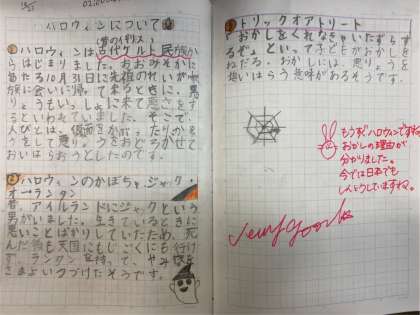 ハロウィンについて
(昔のイギリス)
①ハロウィンは古代ケルト民族か
らはじまりました。おおみそかに
当たる10月31日に先祖のれいが家
族に会いに帰って来るときに、悪
りょうもいっしょに来て悪さをす
るといわれていました。そこで、
人びとは、仮面をかぶったり、
をして悪りょうをおどろかせて
おいはらおうとしたのです。
②ハロウィンのかぼちゃ、ジャック・
オーランタン
昔、アイルランドにジャックという
男がいました。生きているときに
悪いことばかりしていたため、死
んだ後も天国にもじごくにも行け
ず、ランタンを持って、やみ
さまよいつづけたそうです。
③トリックオアトリート
「おかしをくれなきゃいたずらす
るぞ」といって子どもがおかしを
ねだる。おかしには、悪りょうを
追いはらう意味があるそうです。
もうすぐハロウィンですね。
おかしの理由が
分かりました。
今では日本でも
しんとうしていますね。
very good